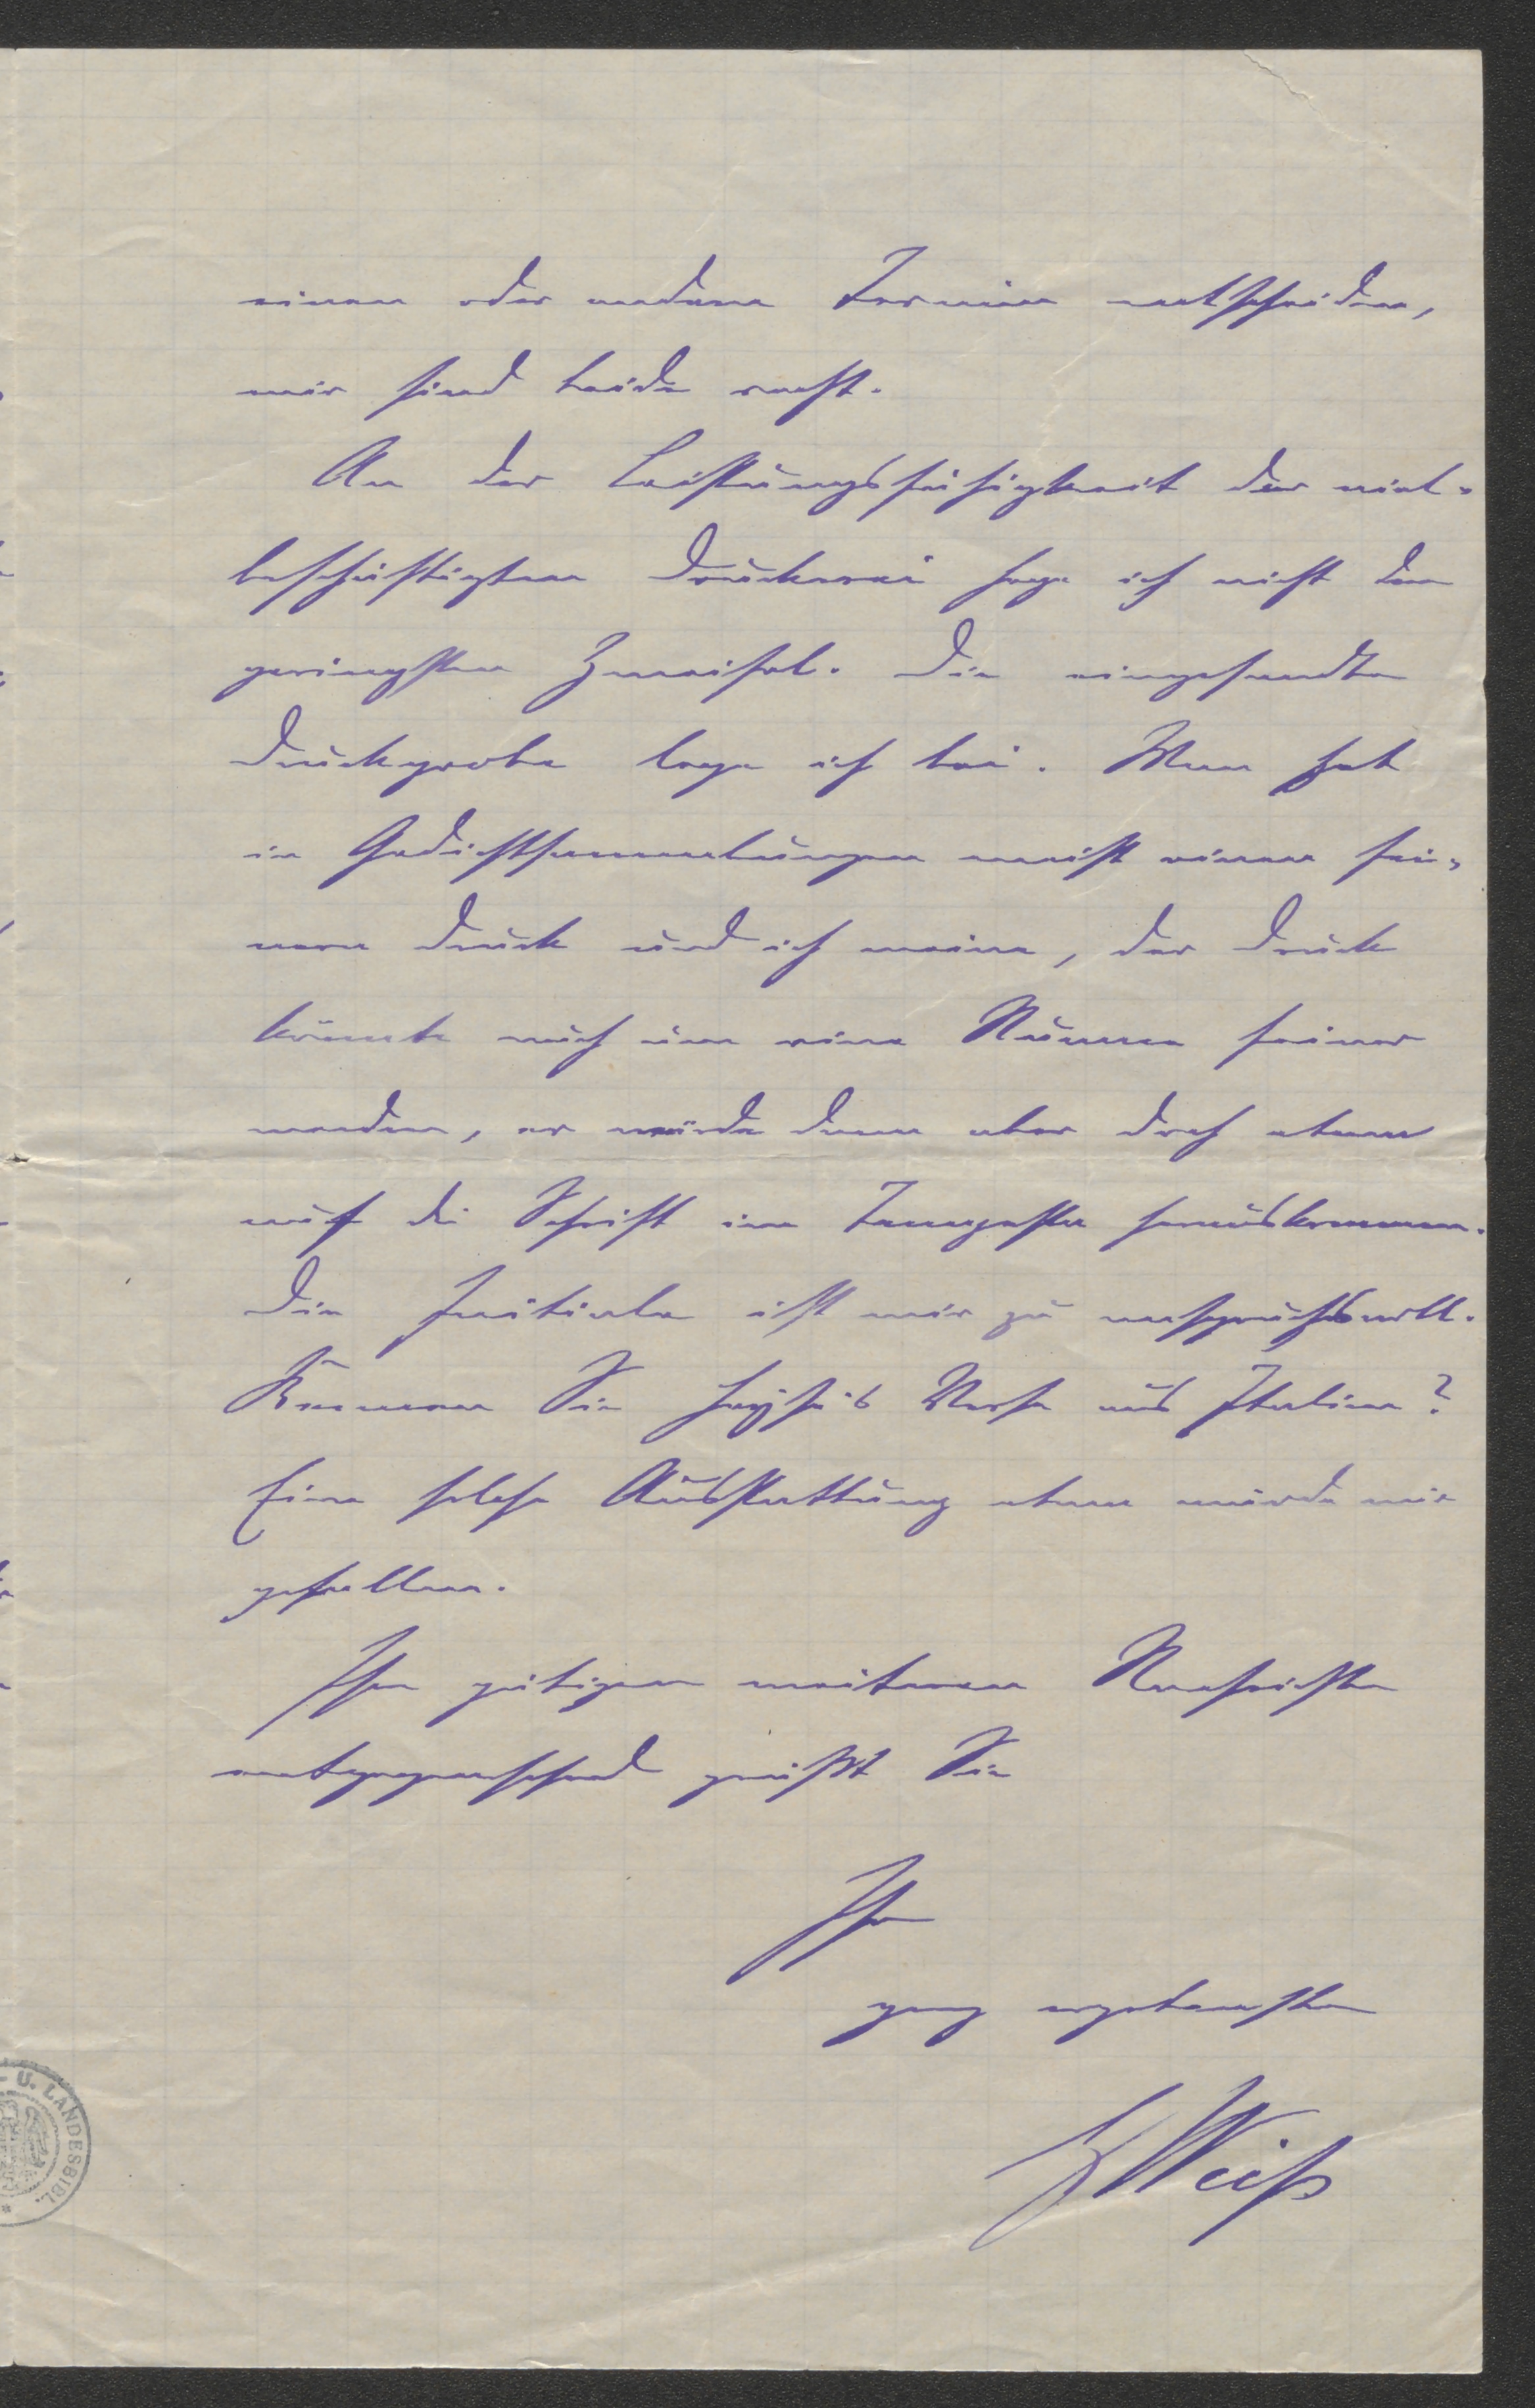 einen oder andern Termin entscheiden,
mir sind beide recht.
An der Leistungsfähigkeit der viel-
beschäftigten Druckerei hege ich nicht den
geringsten Zweifel. Die eingesandte
Druckprobe lege ich bei. Man hat
in Gedichtsammlungen meist einen fei-
nern Druck und ich meine, der Druck
könnte auch um eine Nüance feiner
werden, er würde dann aber doch etwa
auf die Schrift im herauskommen.
Die Initiale ist mir zu anspruchsvoll.
Kennen Sie Heyse's Verse aus Italien?
Eine solche Ausstattung etwa würde mir
gefallen.
Ihren gütigen weiteren Nachrichten
entgegensehend grüßt Sie
Ihr
ganz ergebenster
Weiß
U. LANDESBIBL.